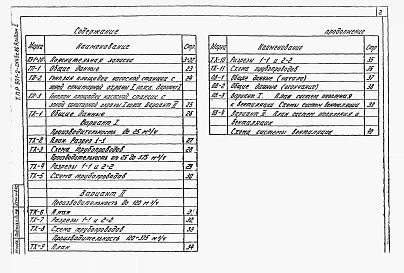 2
Содержание
Марка Наименование Стр.
ПЗ-1 Пояснительная записка 3-22
ГП-1 Общие данные 23
ГП-2 Генплан площадки насосной станции с
зоной санитарной охраны I пояса. Вариант I 24
ГП-3 Генплан площадки насосной станции с
зоной санитарной охраны I пояса. Вариант II 25
ТХ-1 Общие данные 26
Вариант I
Производительность до 25 м³/ч
ТХ-2 План Разрез 1-1 27
ТХ-3 Схема трубопроводов 28
Производительность от 25 до 375 м³/ч
ТХ-4 Разрезы 1-1 и 2-2 29
ТХ-5 Схема трубопроводов 30
Вариант II
Производительность до 120 м³/ч
ТХ-6 План 31
ТХ-7 Разрезы 1-1 и 2-2 32
ТХ-8 Схема трубопроводов 33
Производительность 120-375 м³/ч
ТХ-9 План 34
продолжение
Марка Наименование Стр.
ТХ-10 Разрезы 1-1 и 2-2 35
ТХ-11 Схема трубопроводов 36
ОВ-1 Общие данные (начало) 37
ОВ-2 Общие данные (окончание) 38
ОВ-3 Вариант I. План систем отопления
и вентиляции Схемы систем вентиляции 39
ОВ-4 Вариант II. План систем отопления и
вентиляции
Схема системы вентиляции 40